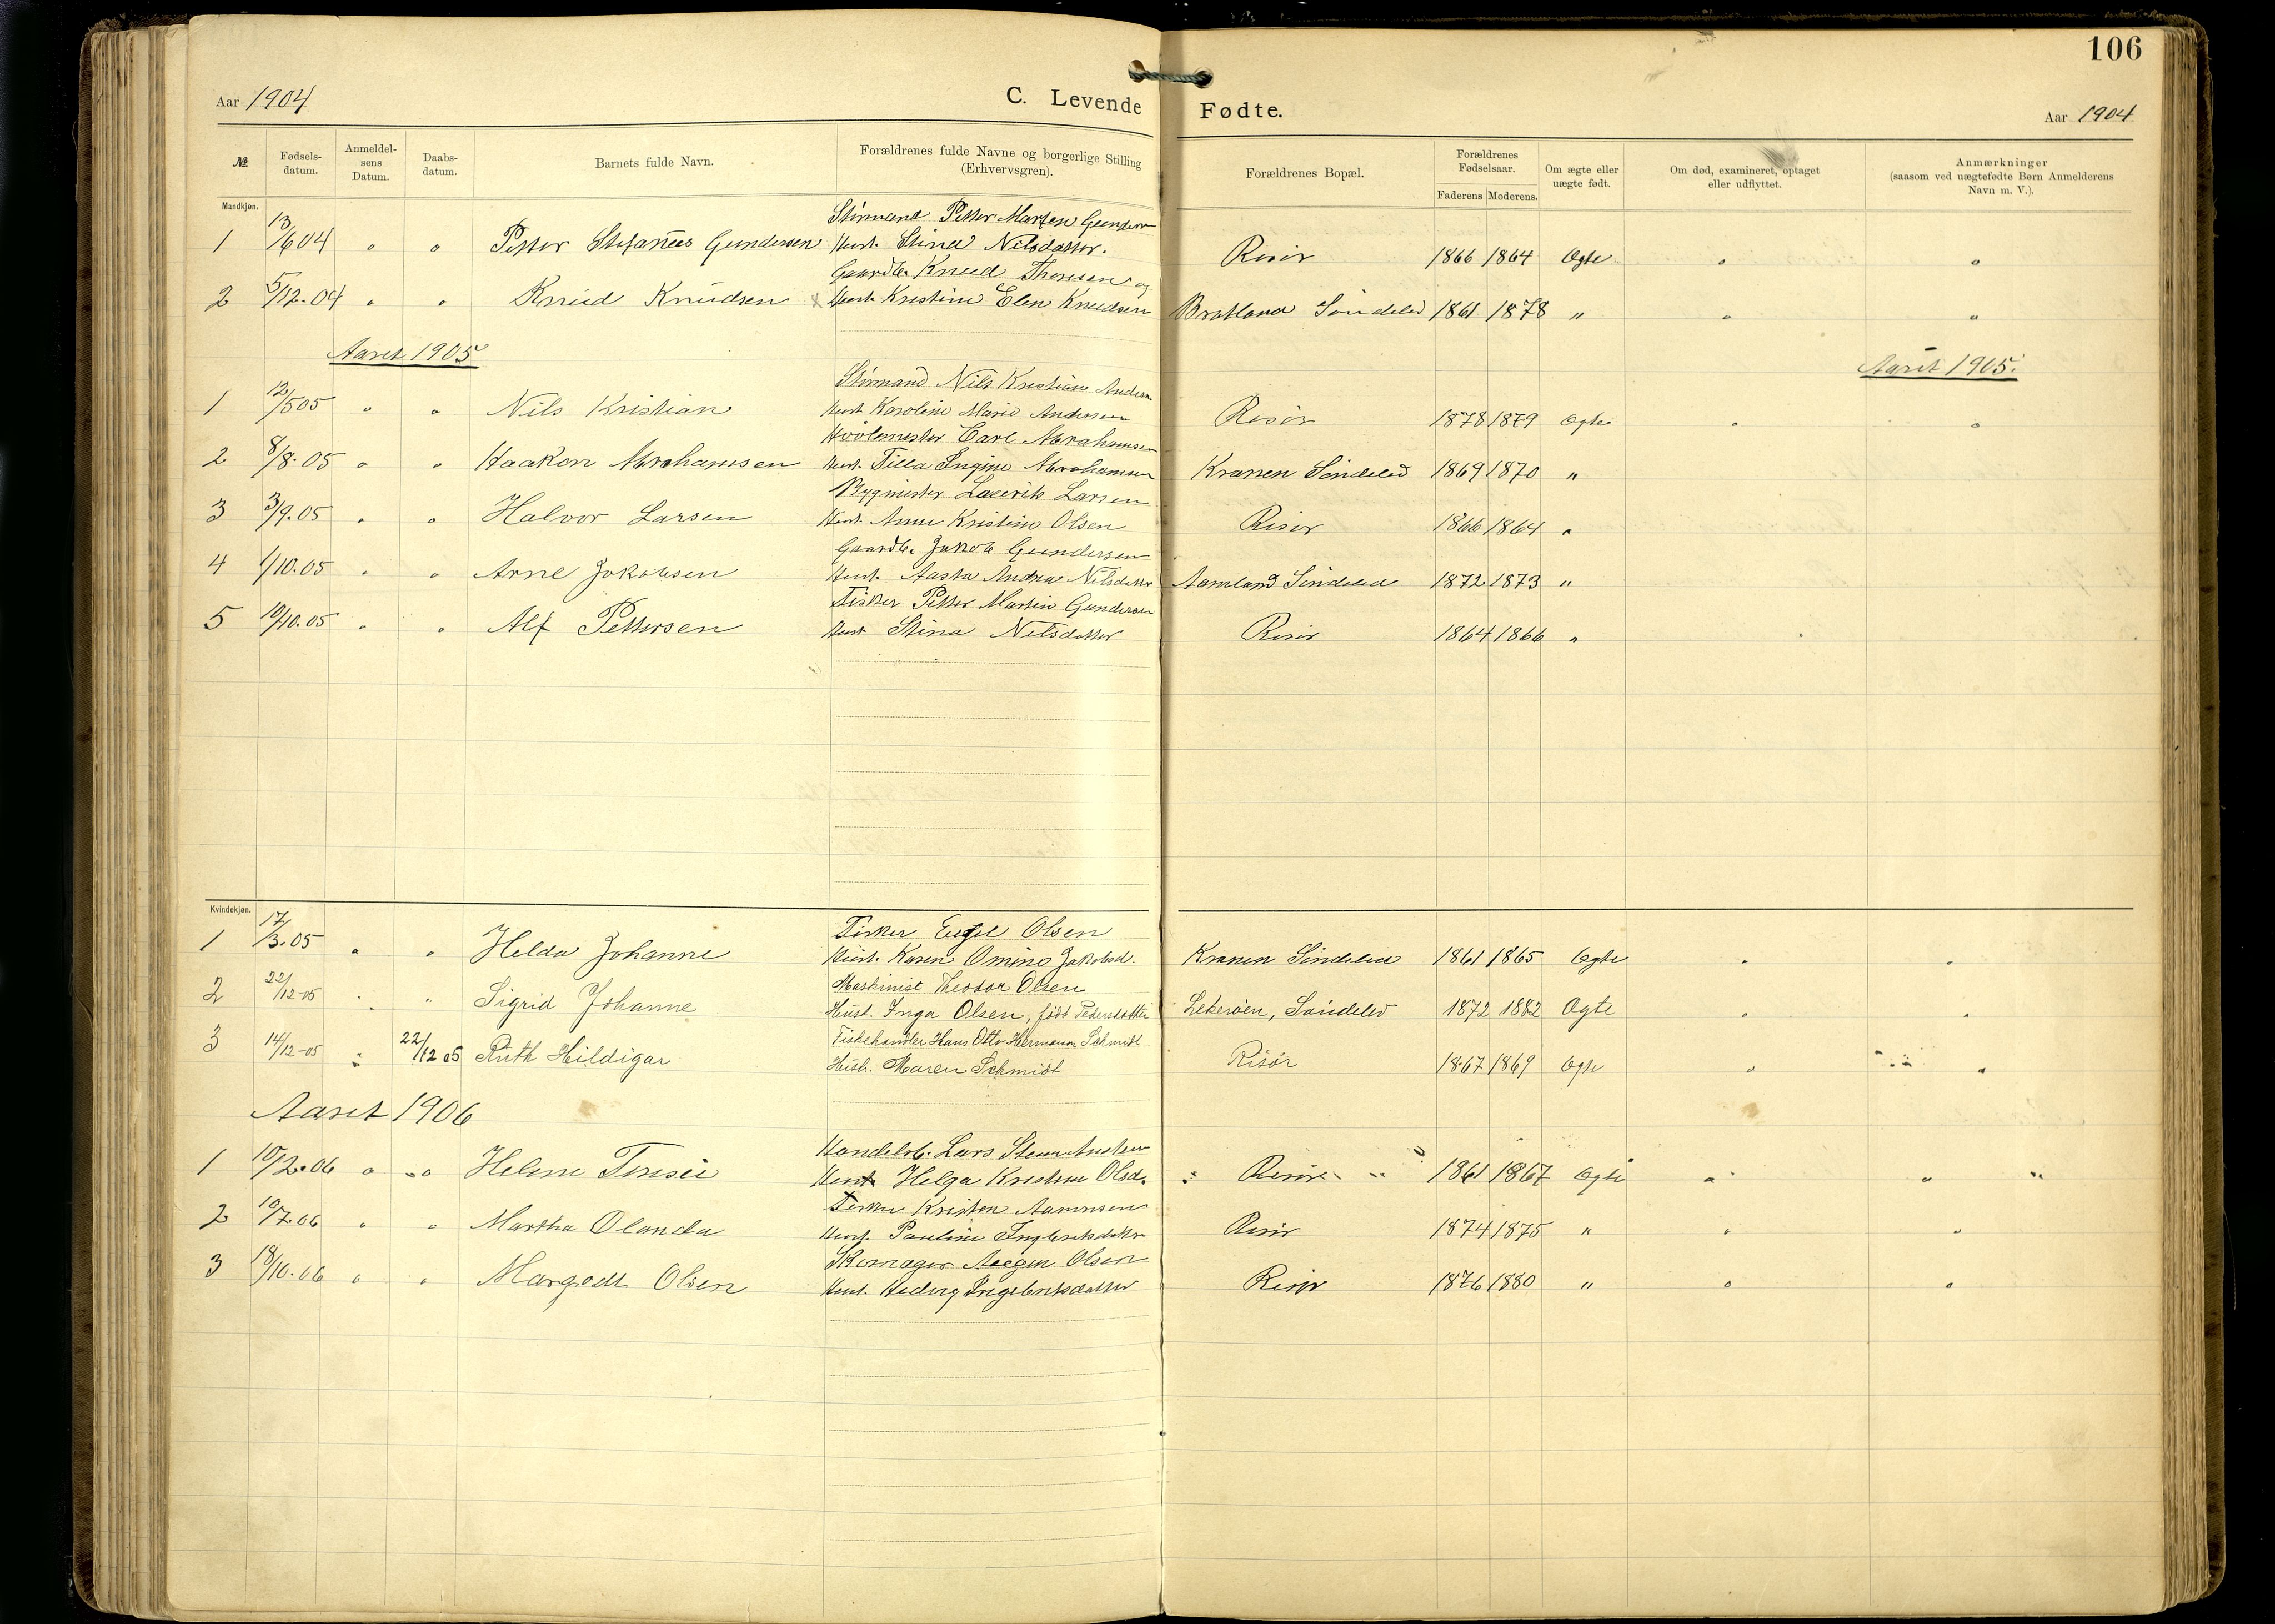 106
Aar 1904
C. Levende Fødte.
Aar 1904
№
Fødsels-datum.
Anmeldel-sens Datum.
Daabs-datum.
Barnets fulde Navn.
Forældrenes fulde Navne og borgerlige Stilling (Erhvervsgren).
Forældrenes Bopæl.
Forældrenes Fødselsaar.
Faderens Moderens.
Om ægte eller uægte født.
Om død, examineret, optaget eller udflyttet.
Anmærkninger (saasom ved uægtefødte Børn Anmelderens Navn m. V.).
Mandkjøn.
Stirmand Petter Marten Gundersen
1 13/6 04 " " Petter Stefanus Gundersen Hust. Stina Nilsdatter. Risör 1866 1864 Ægte " "
Gaardb. Knud Thoresen og
2 5/12.04 " " Knud Knudsen Hust. Kristine Elen Knudsen Bratland Söndeled 1861 1878 " " "
Aaret 1905
Aaret 1905.
Stirmand Nils Kristian Andersen
1 12/5 05 " " Nils Kristian Hust Karoline Marie Andersen Risör 1878 1879 Ægte " "
Carl Abrahamsen
2 8/8.05 " " Haakon Abrahamsen Hust. Tilla Ingine Abrahamsen Kranen Söndeled 1869 1870 "
Bygmester Lauerits Larsen
3 3/9.05 " " Halvor Larsen Hust. Anne Kristine Olsen Risör 1866 1864 "
Gaardb. Jakob Gundersen
4 1/10.05 " " Arne Jakobsen Hust. Aasta Andrea Nilsdatter Aamland Söndeled 1872 1873 "
Fisker Petter Martin Gundersen
5 10/10.05 " " Alf Pettersen Hust Stina Nilsdatter Risör 1864 1866 "
Kvindekjøn.
Fisker Olsen
1 17/3.05 " " Helda Johanne Hust. Karen Omine Jakobsd. Kranen Söndeled 1861 1865 Ægte " "
Maskinist Theodor Olsen
2 22/12-05 " " Sigrid Johanne Hust. Inga Olsen, født Pedersdatter Söndeled 1872 1882 Ægte " "
Fiskehandler Hans Otto Hermann Schmidt
3 14/12-05 " 22/12 05 Ruth Hildigar Hust. Maren Schmidt Risör 1867 1869 Ægte " "
Aaret 1906
Handelsb. Lars
1 10/2.06 " " Helene Hust Helga Kristine Olsd. Risör 1861 1867 Ægte " " "
Fisker Kristen
2 10/7.06 " " Martha Olanda Hust. Pauline Ingebretsdatter Risör 1874 1875 " " "
Skomager Olsen
3 18/10.06 " " Margodt Olsen Hust. Hedvig Ingebretsdatter Risör 1876 1880 " " "